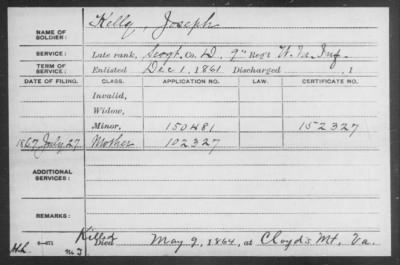 NAME OF SOLDIER: Kelly, Joseph
SERVICE: Late rank, Sergt. Co. D, 9" Regt W. Va. Inf.
TERM OF SERVICE: Enlisted Dec 1, 1861 Discharged , 1
DATE OF FILING. CLASS. APPLICATION NO. LAW. CERTIFICATE NO.
Invalid,
Widow,
Minor, 150481 152327
1867 July 27 Mother 102327
ADDITIONAL SERVICES:
REMARKS:
Killed
Died May 9, 1864, at Cloyd's Mt, Va.